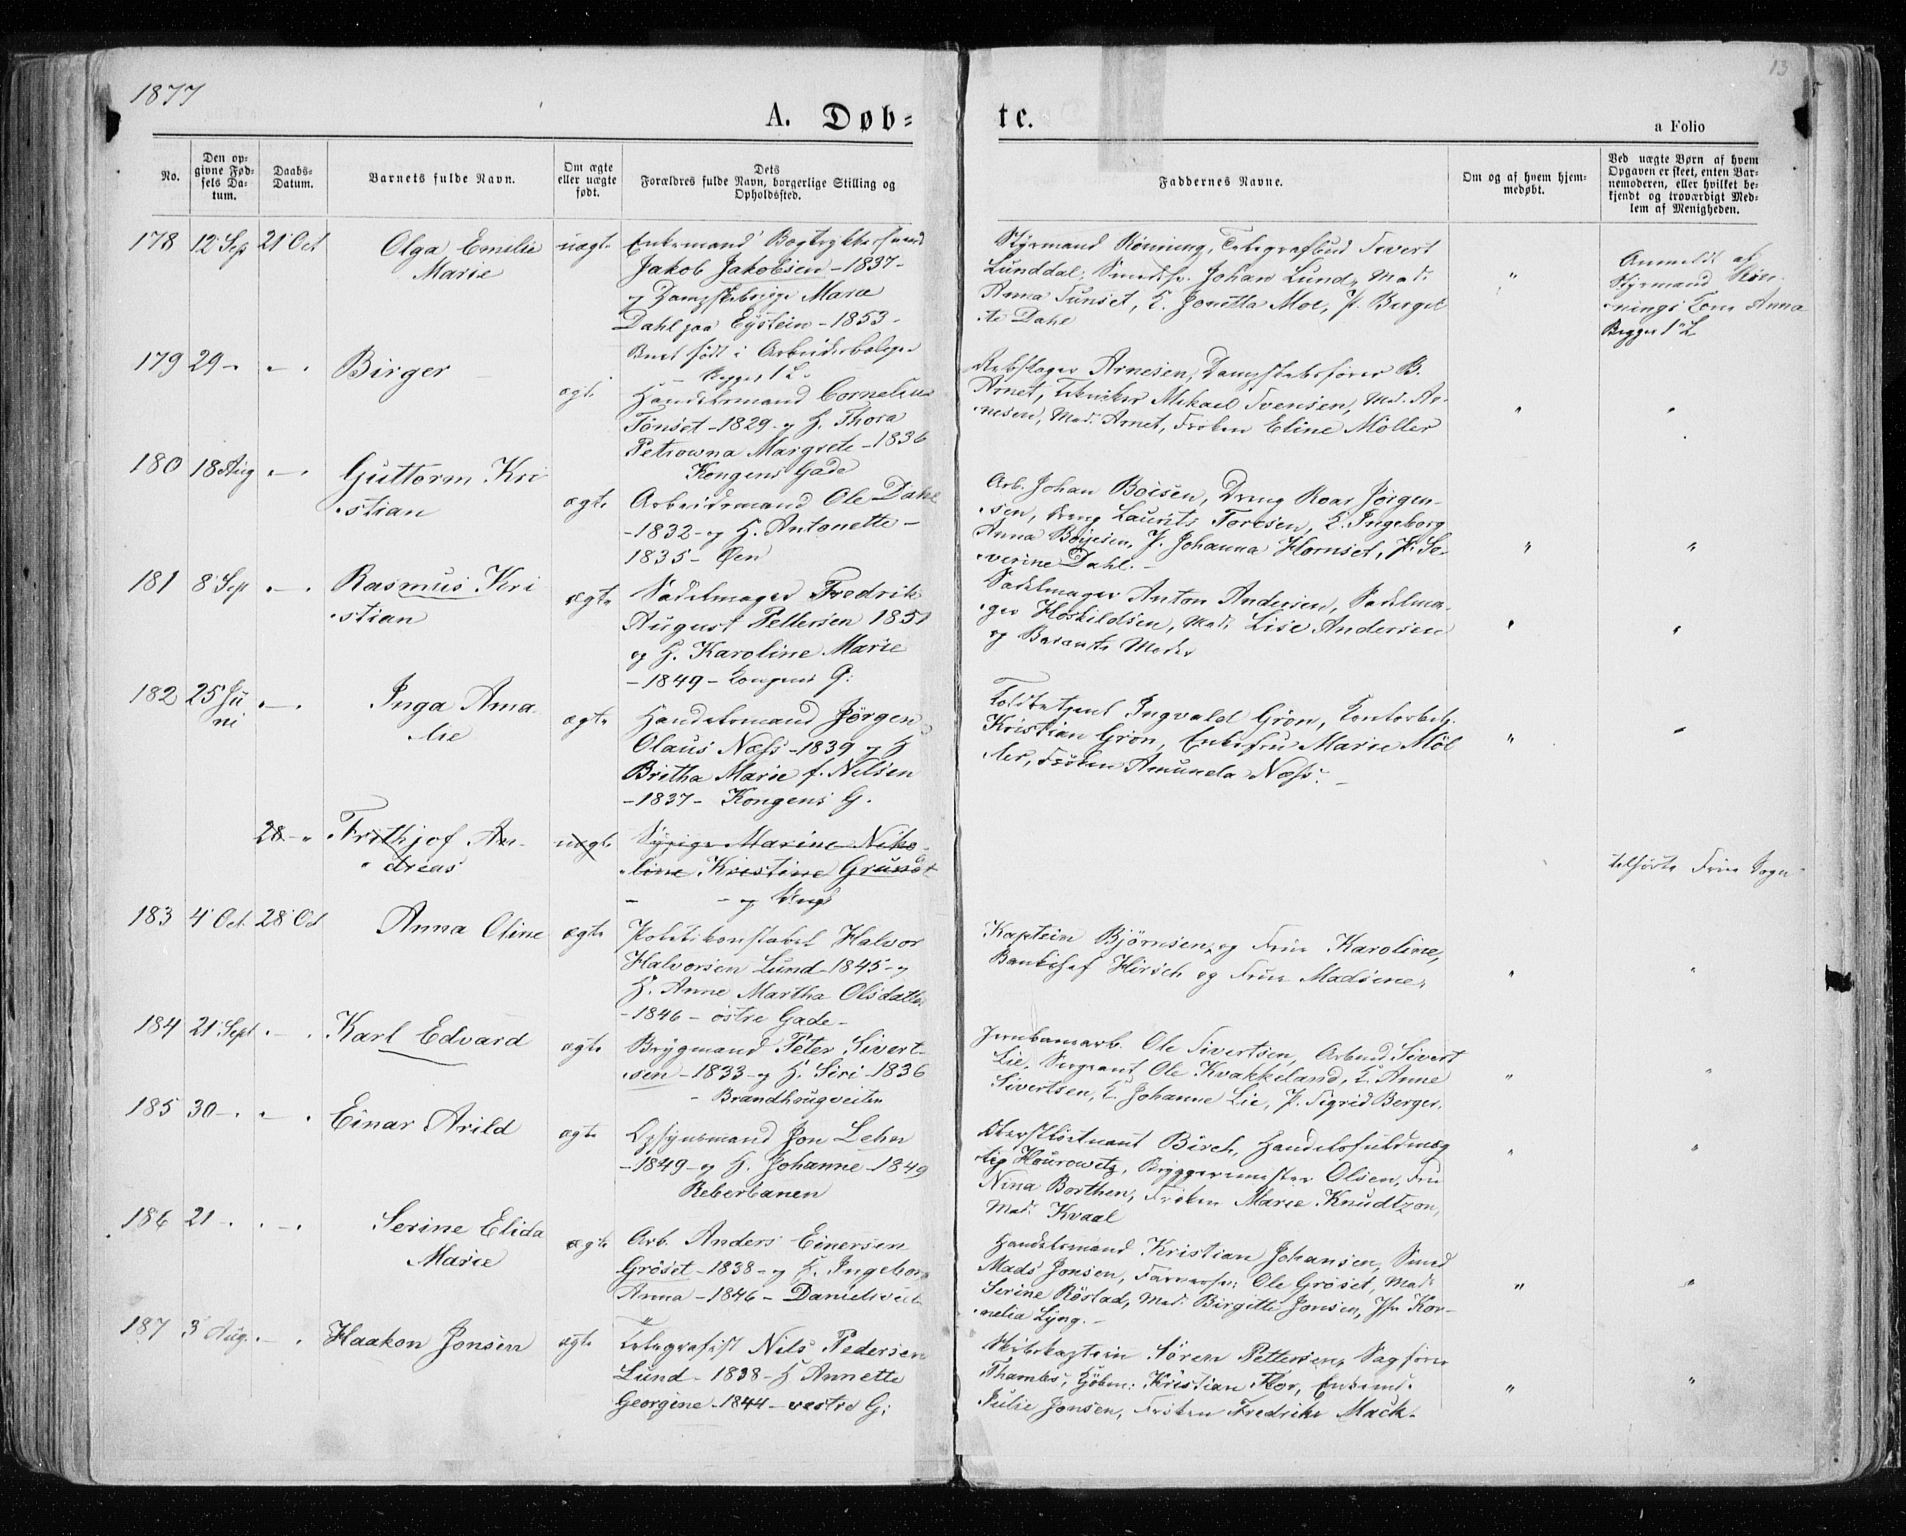 1877
13
A. Døb-
te.
a Folio
No.
Den op-
givne Fød-
sels Da-
tum.
Daabs-
Datum.
Barnets fulde Navn.
Om ægte
eller uægte
født.
Dets
Forældres fulde Navn, borgerlige Stilling og
Opholdssted.
Faddernes Navne.
Om og af hvem hjem-
medøbt.
Ved uægte Børn af hvem
Opgaven er skeet, enten Bar-
nemoderen, eller hvilket be-
kjendt og troværdigt Med-
lem af Menigheden.
178 12 Sep 21 Oct
Olga Emelie
Marie
uægte
Enkemand Bogtrykkersvend
Jakob Jakobsen - 1837 -
og Pige Mara
Dahl paa Eystein - 1853 -
Barnet født i
Begges 1 L.
Styrmand Rönning, Telegrafbud Sivert
Lunddal, Smedsv. Johan Lund, Mad.
Anna Tunset, E. Jonetta Moe, P. Berget
te Dahl
"
Anmeldt af
Styrmand Røn-
nings Kone Anna
Begges 1 L
179 29 - " - "
Birger
ægte
Handelsmand Cornelius
Tønset - 1829 - og H. Thora
Petrowna Margrete - 1836
Kongens Gade
Rebslager Arnesen, Dampskibsfører B.
Arnet, Mikael Svensen, Mad. Ar-
nesen, Mad. Arnet, Frøken Eline Møller
"
"
180 18 Aug " - "
Guttorm Kri
stian
ægte
Arbeidsmand Ole Dahl
- 1832 - og H. Antonette -
1835 - Øen
Arb. Johan Boisen, Dreng Roar Jørgen-
sen, Dreng Laurits Toresen, E. Ingeborg
Anna Boysen, P. Johanna Hornset, P. Se-
verine Dahl. -
"
"
181 8 Sept " - "
Rasmus Kri
stian
ægte
Sadelmager Fredrik
August Pettersen 1851
og H. Karoline Marie
- 1849 - Kongens G:
Sadelmager Anton Andersen, Sadelma-
ger Hoskildsen, Mad. Lise Andersen
og Barnets Moder
"
"
182 25 Ju
ni
" - "
Inga Ama
lie
ægte
Handelsmand Jørgen
Olaus Næss - 1839 og H
Britha Marie f. Nilsen
- 1837 - Kongens G.
Toldbetjent Ingvald Grøn, Kontorbetj.
Kristian Grøn, Enkefru Marie Møl
ler, Frøken Amunda Næss. -
"
"
28 - "
Frithjof An-
dreas
uægte
Marine Niko-
line Kristine Grundt
- - og Ungk
tilføres Frue Sogn
183 4 Oct. 28 Oct
Anna Oline
ægte
Politikonstabel Halvor
Halvorsen Lund - 1845 - og
H. Anne Martha Olsdatter
- 1846 - østre Gade -
Kaptein Bjørnsen, og Frue Karoline,
Bankchef Hirsch og Frue Madsine,
"
"
184 21 Sept " - "
Karl Edvard
ægte
Brygmand Peter Sivert-
sen - 1833 - og H. Siri - 1836
- Brandhaugveiten
Jernbanearb. Ole Sivertsen, Arbmd. Sivert
Lie, Sergeant Ole Kvakkeland, E. Anne
Sivertsen, E. Johanne Lie, P. Sigrid Berger.
"
"
185 30 - " - "
Einar Arild
ægte
Opsynsmand Jon Lehn
- 1849 - og H. Johanne - 1849
Reberbanen
Oberstløitnant Birch, Handelsfuldmæg
tig Hourowitz, Bryggermester Olsen, Fru
Nina Borthen, Frøken Marie Knudtzon,
Mad. Kvaal
"
"
186 21 - " - "
Serine Elida
Marie
ægte
Arb. Anders Einersen
Grøset - 1838 - og H. Ingeborg
Anna - 1846 - Danielsveit
Handelsmand Kristian Johansen, Smed
Mads Jonsen, Farversv: Ole Grøset, Mad.
Serine Røstad, Mad. Birgitte Jonsen, Jfr. Kor-
nelia Ljøng. -
"
"
187 3 Aug. " - "
Haakon Jonsen
ægte
Telegrafist Nils Pedersen
Lund - 1838 - H Annette
Georgine - 1844 - vestre G:
Skibskaptein Sören Pettersen, Sagfører
Thambs, Kjøbm: Kristian Flor, Enkemd.
Julie Jonsen, Frøken Fredrike Mack.
"
"